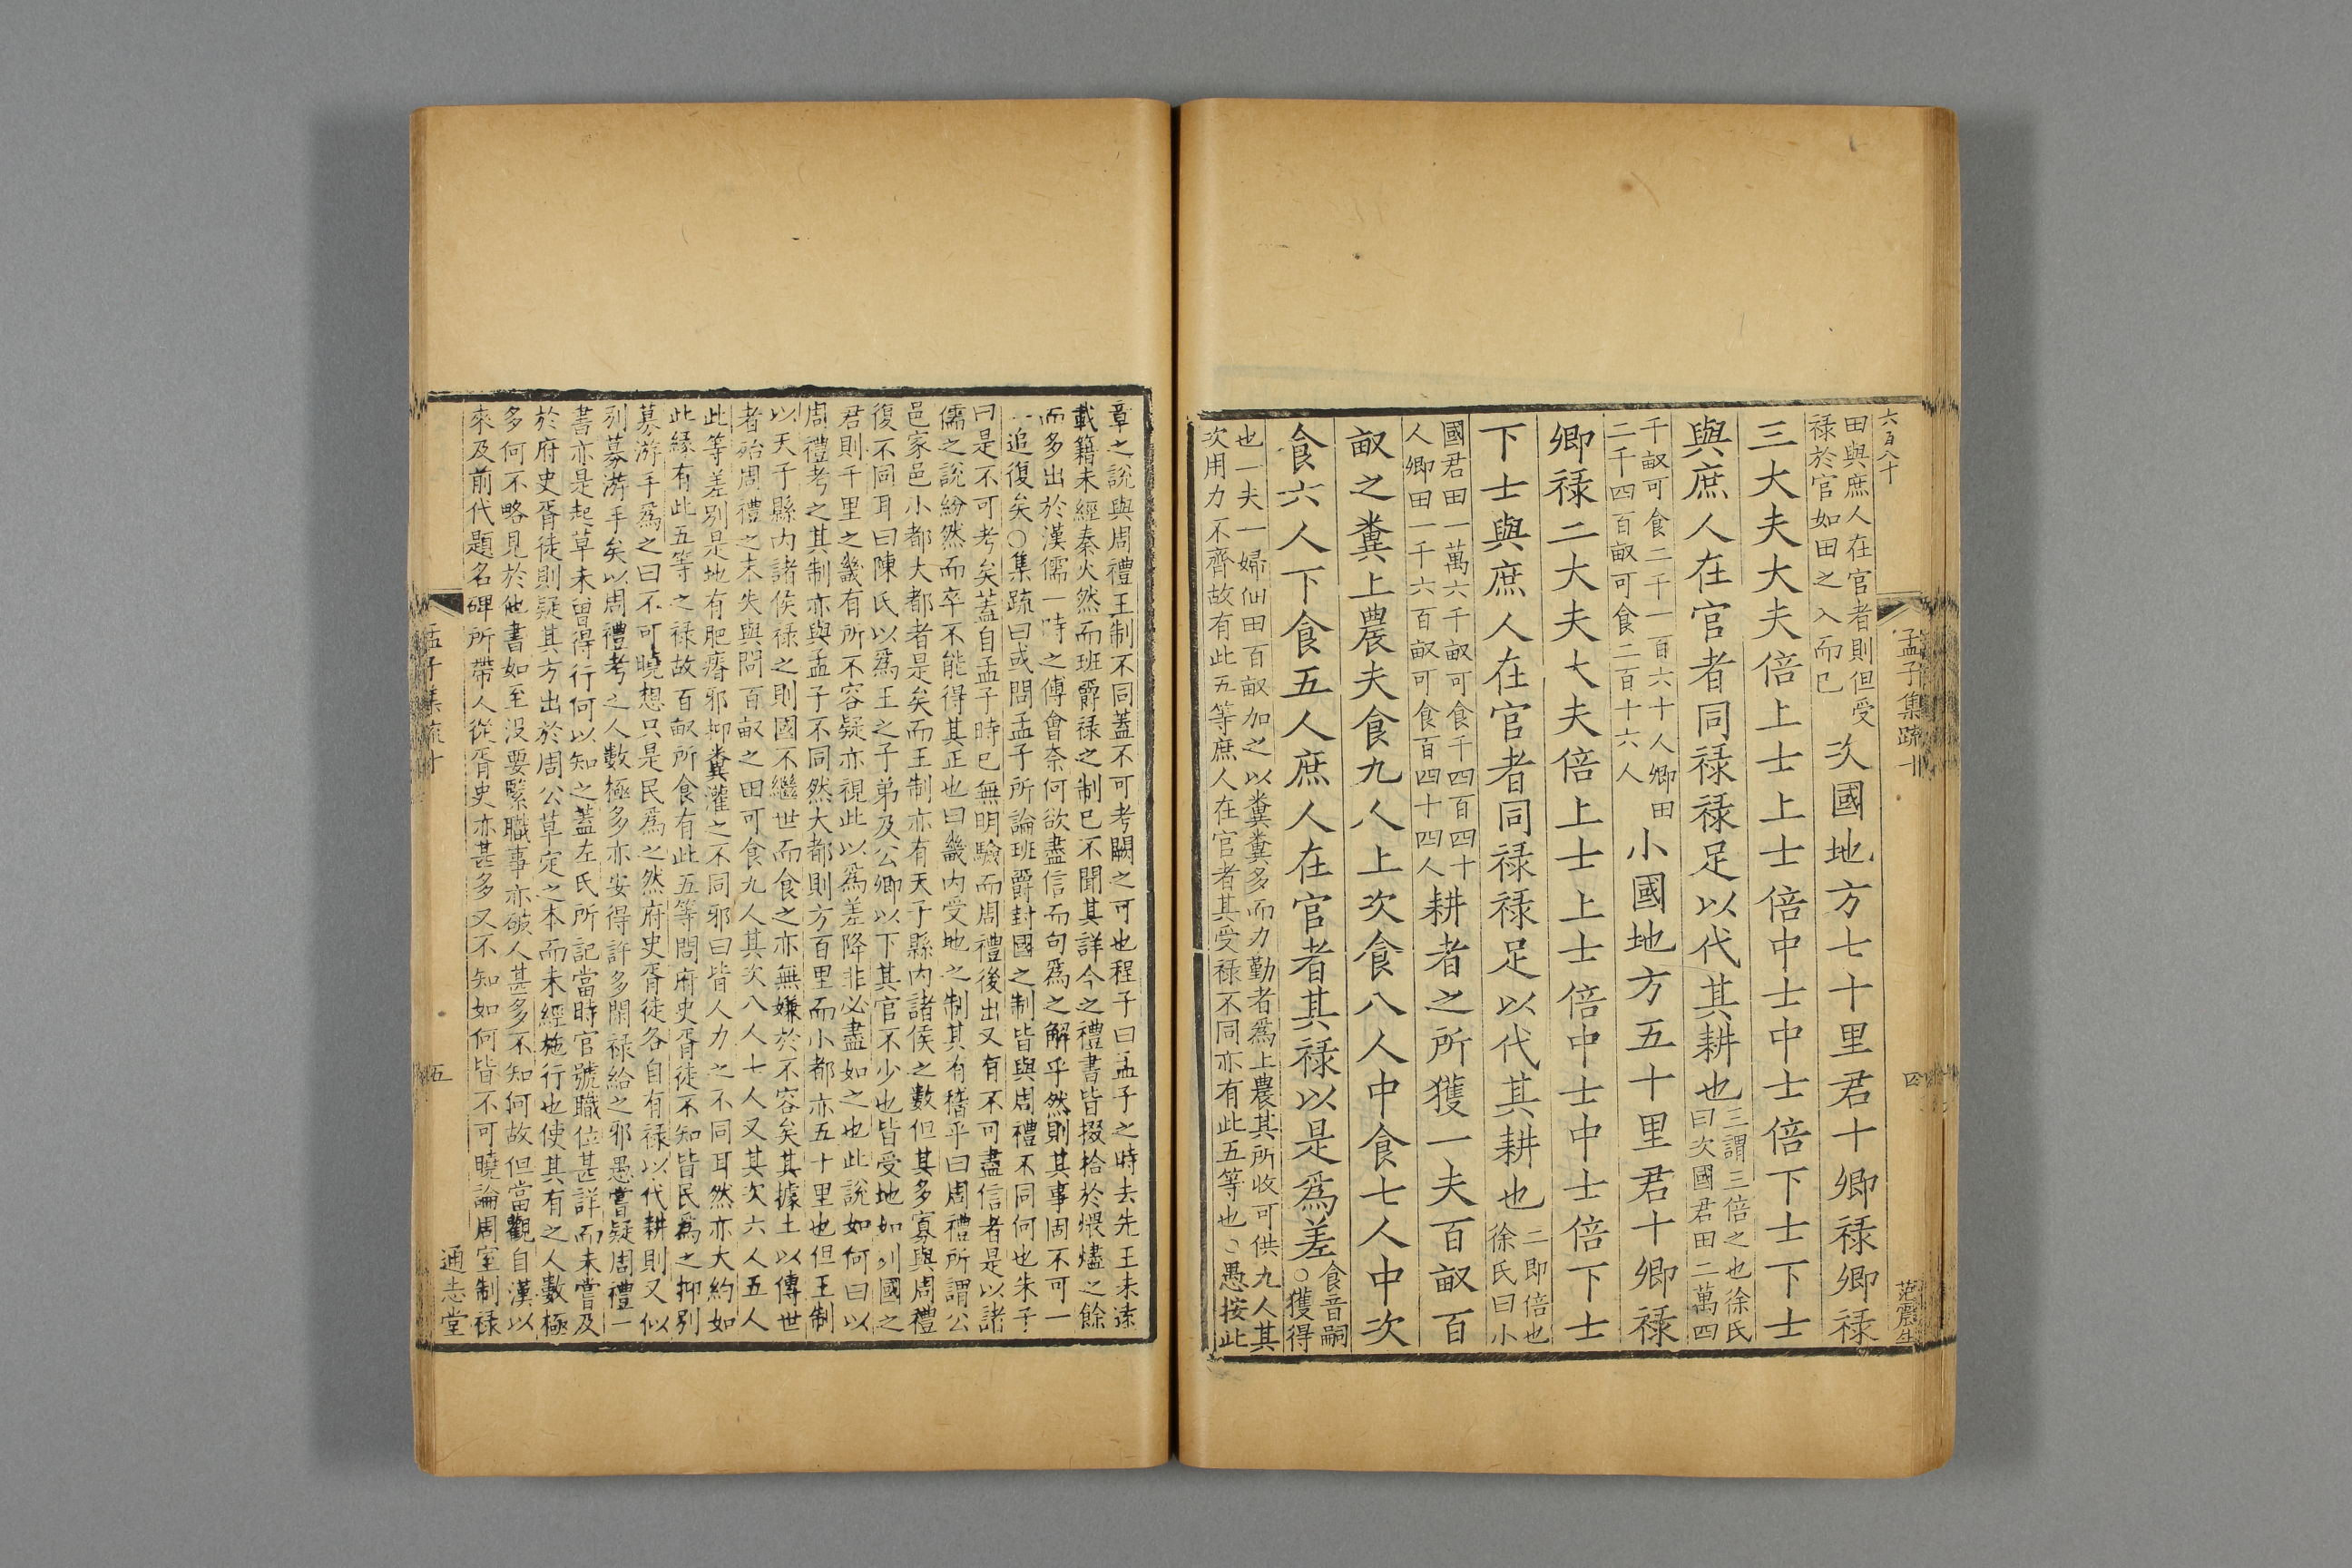 六百八十
孟子集疏十
四
范震生
田與庶人在官者則但受
祿於官如田之入而已
次國地方七十里君十卿祿卿祿
三大夫大夫倍上士上士倍中士中士倍下士下士
與庶人在官者同祿祿足以代其耕也
三謂三倍之也徐氏
曰次國君田二萬四
千畝可食二千一百六十人卿田
二千四百畝可食二百十六人
小國地方五十里君十卿祿
卿祿二大夫大夫倍上士上士倍中士中士倍下士
下士與庶人在官者同祿祿足以代其耕也
二即倍也
徐氏曰小
國君田一萬六千畝可食千四百四十
人卿田一千六百畝可食百四十四人
耕者之所獲一夫百畝百
畝之糞上農夫食九人上次食八人中食七人中次
食六人下食五人庶人在官者其祿以是爲差
食音嗣
○獲得
也一夫一婦佃田百畝加之以糞糞多而力勤者爲上農其所收可供九人其
次用力不齊故有此五等庶人在官者其受祿不同亦有此五等也○愚按此
章之說與周禮王制不同蓋不可考闕之可也程子曰孟子之時去先王未遠
載籍未經秦火然而班爵祿之制已不聞其詳今之禮書皆掇拾於煨燼之餘
而多出於漢儒一時之傅會柰何欲盡信而句爲之解乎然則其事固不可一
一追復矣○集疏曰或問孟子所論班爵封國之制皆與周禮不同何也朱子
曰是不可考矣蓋自孟子時已無明驗而周禮後出又有不可盡信者是以諸
儒之說紛然而卒不能得其正也曰畿內受地之制其有稽乎曰周禮所謂公
邑家邑小都大都者是矣而王制亦有天子縣內諸侯之數但其多寡與周禮
復不同耳曰陳氏以爲王之子弟及公卿以下其官不少也皆受地如列國之
君則千里之畿有所不容疑亦視此以爲差降非必盡如之也此說如何曰以
周禮考之其制亦與孟子不同然大都則方百里而小都亦五十里也但王制
以天子縣內諸侯祿之則國不繼世而食之亦無嫌於不容矣其據土以傳世
者殆周禮之末失與問百畝之田可食九人其次八人七人又其次六人五人
此等差別是地有肥瘠邪抑糞灌之不同邪曰皆人力之不同耳然亦大約如
此緣有此五等之祿故百畝所食有此五等問府史胥徒不知皆民爲之抑別
募游手爲之曰不可曉想只是民爲之然府史胥徒各自有祿以代耕則又似
別募游手矣以周禮考之人數極多亦安得許多閑祿給之邪愚嘗疑周禮一
書亦是起草未曾得行何以知之蓋左氏所記當時官號職位甚詳而未嘗及
於府史胥徒則疑其方出於周公草定之本而未經施行也使其有之人數極
多何不略見於他書如至沒要緊職事亦破人甚多不知何故但當觀自漢以
來及前代題名碑所帶人從胥史亦甚多又不知如何皆不可曉論周室制祿
孟子集疏十
五
通志堂